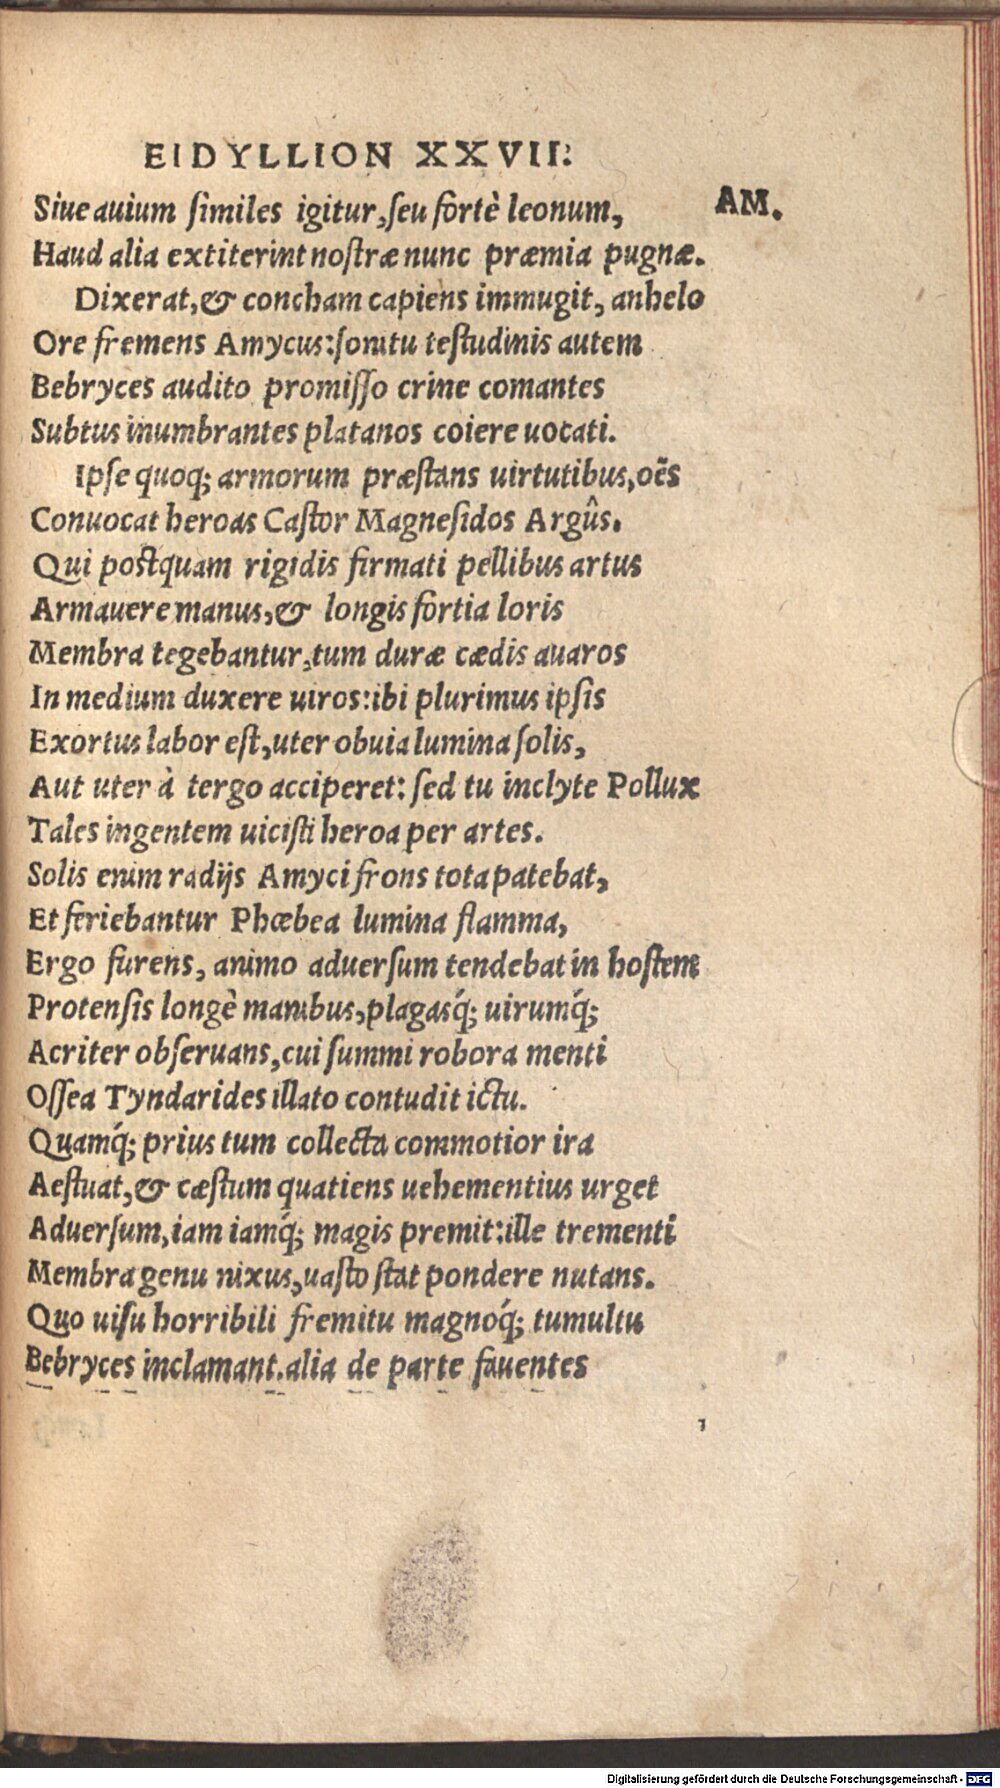 EIDYLLION XXVII.
Siue auium similes igitur, seu fortè leonum, AM.
Haud alia extiterint nostræ nunc præmia pugnæ.
Dixerat, & concham capiens immugit, anhelo
Ore fremens Amycus: sonitu testudinis autem
Bebryces audito promisso crine comantes
Subtus inumbrantes platanos coiere uocati.
Ipse quoq; armorum præstans uirtutibus, oẽs
Conuocat heroas Castor Magnesidos Argûs.
Qui postquam rigidis firmati pellibus artus
Armauere manus, & longis fortia loris
Membra tegebantur, tum duræ cædis auaros
In medium duxere uiros: ibi plurimus ipsis
Exortus labor est, uter obuia lumina solis,
Aut uter à tergo acciperet: sed tu inclyte Pollux
Tales ingentem uicisti heroa per artes.
Solis enim radijs Amyci frons tota patebat,
Et feriebantur Phœbea lumina flamma,
Ergo furens, animo aduersum tendebat in hostem
Protensis longè manibus, plagasq́; uirumq́;
Acriter obseruans, cui summi robora menti
Ossea Tyndarides illato contudit ictu.
Quamq́; prius tum collecta commotior ira
Aestuat, & cæstum quatiens uehementius urget
Aduersum, iam iamq́; magis premit: ille trementi
Membra genu nixus, uasto stat pondere nutans.
Quo uisu horribili fremitu magnoq́; tumultu
Bebryces inclamant. alia de parte fauentes
1
Digitalisierung gefördert durch die Deutsche Forschungsgemeinschaft - DFG